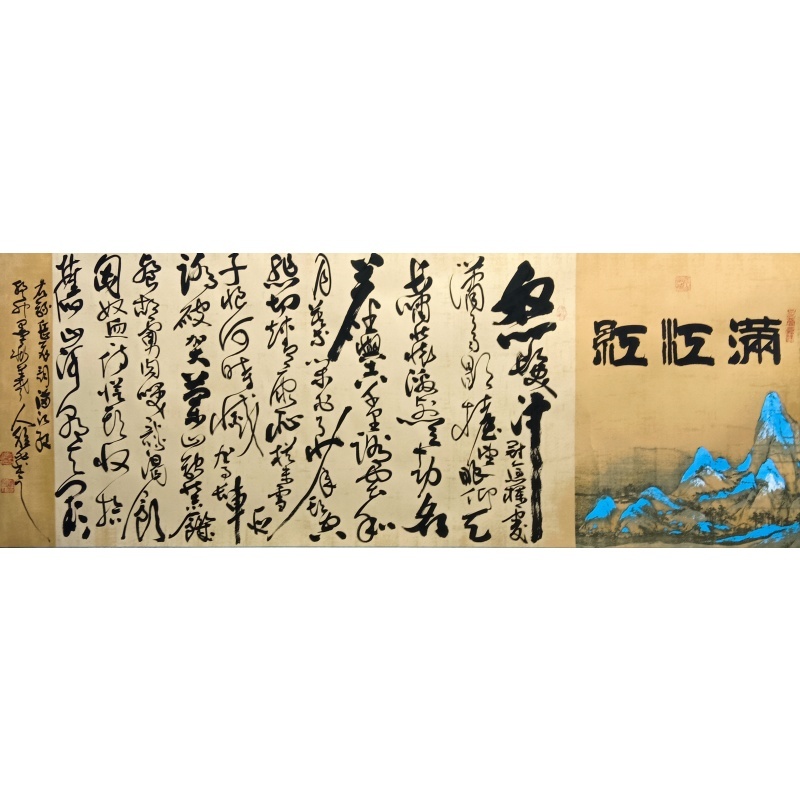 滿江紅
怒髮沖冠憑欄處
瀟瀟雨歇擡望眼仰天
長嘯壯懷激烈三十功名
塵與土八千里路雲和
月莫等閒白了少年頭空
悲切靖康恥猶未雪臣
子恨何時滅駕長車
踏破賀蘭山缺壯志飢
餐胡虜肉笑談渴飲
匈奴血待從頭收拾
舊山河朝天闕
岳飛詞滿江紅